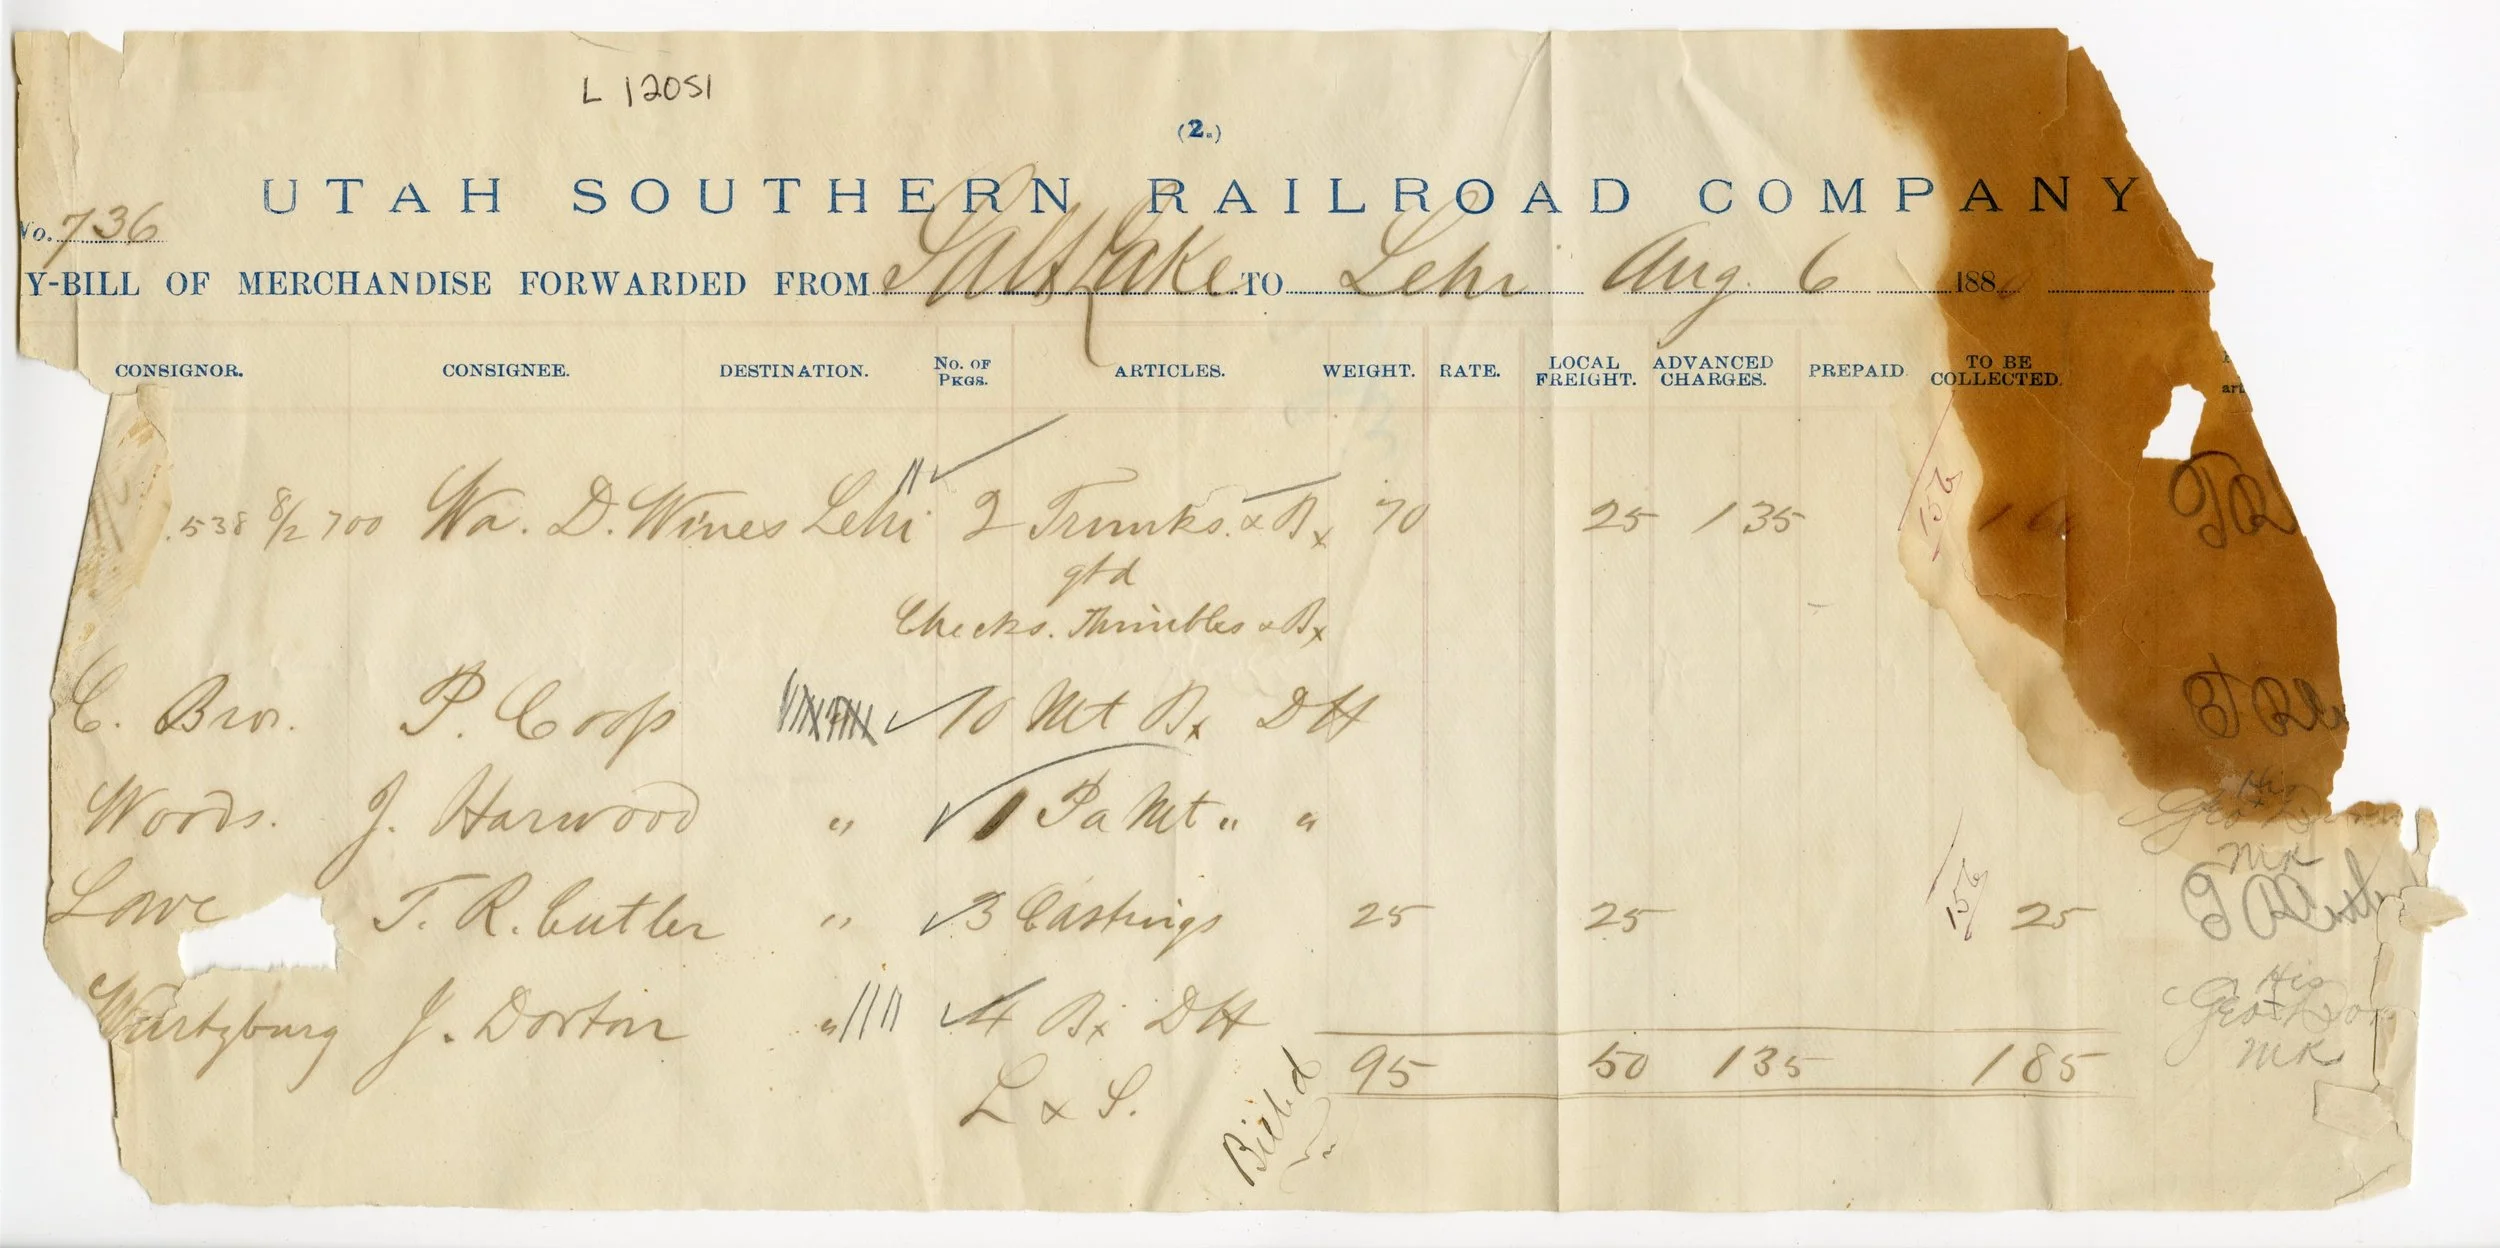 L 12051
(2.)
UTAH SOUTHERN RAILROAD COMPANY
No. 736
Y-BILL OF MERCHANDISE FORWARDED FROM Salt Lake TO Lehi Aug. 6 188
CONSIGNOR. CONSIGNEE. DESTINATION. No. OF PKGS. ARTICLES. WEIGHT. RATE. LOCAL FREIGHT. ADVANCED CHARGES. PREPAID. TO BE COLLECTED.
538 8/2 700 Wa. D. Wines Lehi 2 Trunks. & Bx 70 25 135 156 1
gtd
Checks. Thimbles & Bx
C. Bros. P. Coop 10 Mt Bx DH
Woods. J. Harwood " 1 Pa Mt " "
Lowe T. R. Cutler " 3 Castings 25 25 156 25
Wurtzburg J. Dorton " 4 Bx DH
95 50 135 185
L & S.
Billed
His
Geo
MK
His
Geo
MK